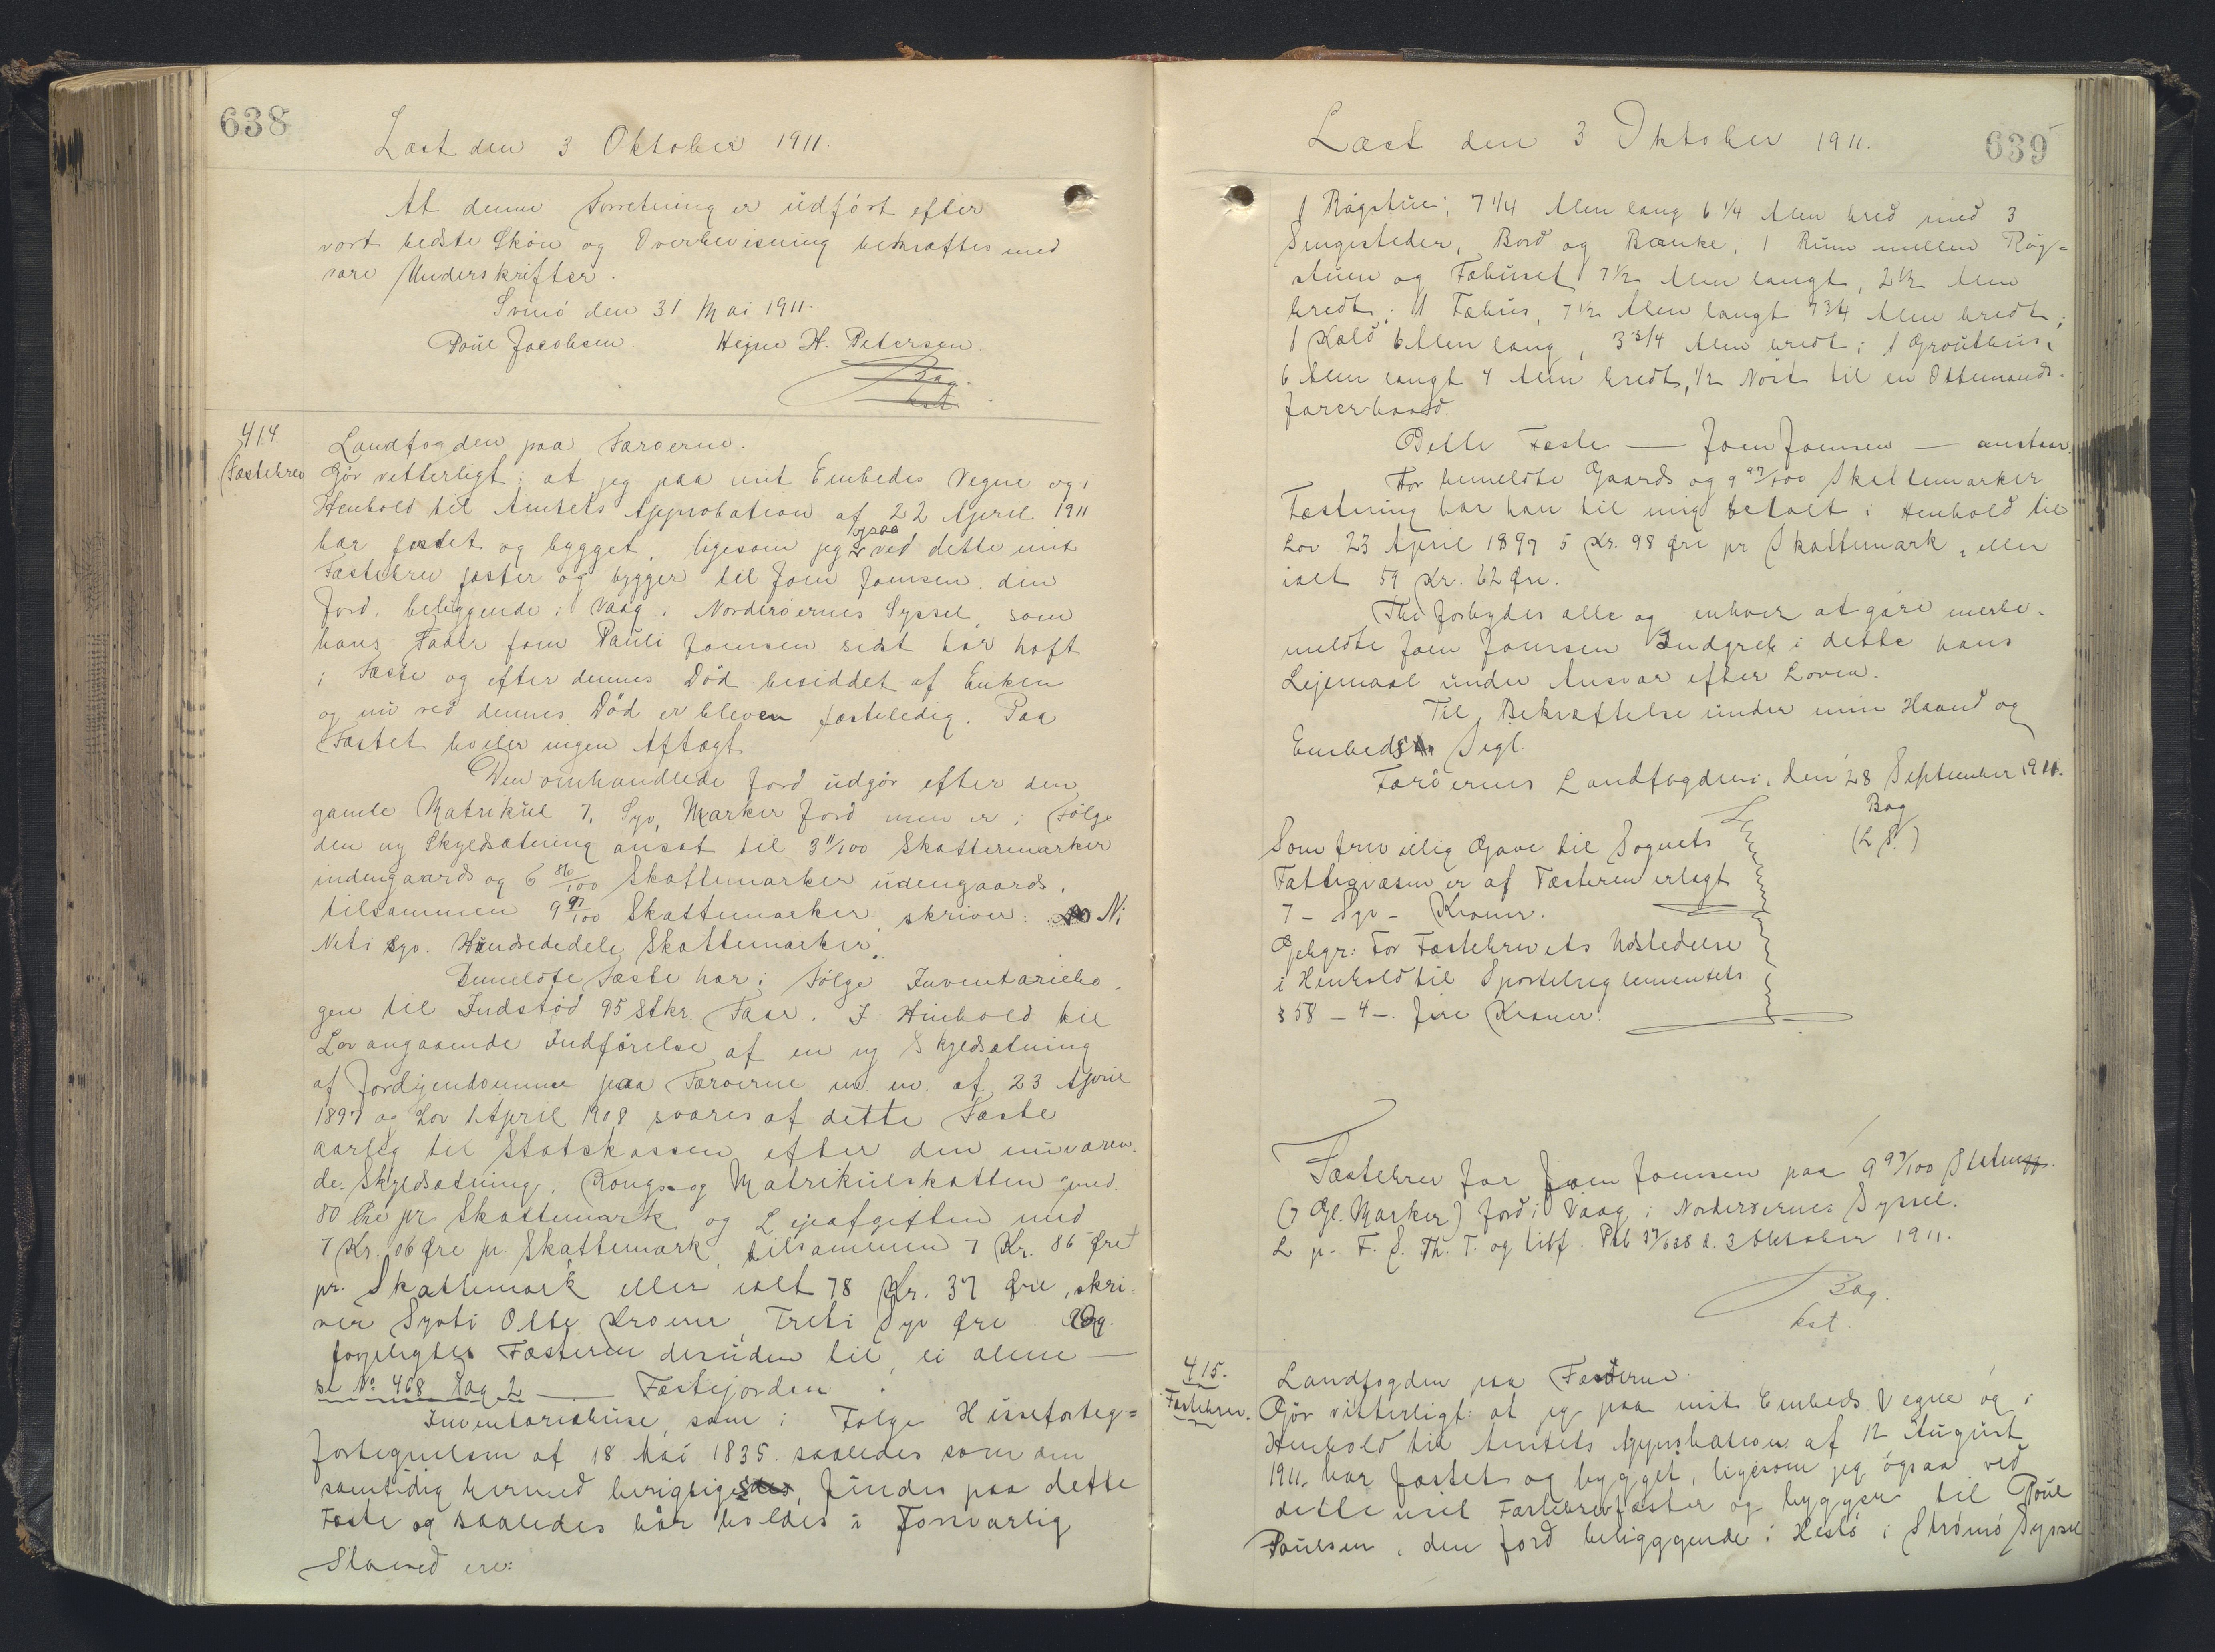 638
Læst den 3 Oktober 1911.
At denne Forretning er udført efter
vort bedste Skøn og Overbevisning bekræftes med
vore Underskrifter.
Svinö den 31 Mai 1911.
Poul Jacobsen. Hejne H. Petersen.
Bag.
kst
414.
Fæstebrev
Landfogden paa Færøerne.
Gör vitterligt: at jeg paa mit Embedes Vegne og i
Henhold til Amtets Approbation af 22 April 1911
har fæstet og bygget, ligesom jeg ogsaa ved dette mit
Fæstebrev fæster og bygger til Joen Joensen den
Jord, beliggende i Vaag i Norderöernes Syssel, som
hans Fader Joen Pauli Joensen sidst har haft
i Fæste og efter dennes Död besiddet af Enken
og nu ved dennes Död er bleven fæsteledig. Paa
Fæstet hviler ingen Aftægt.
Den omhandlede Jord udgör efter den
gamle Matrikul 7, Syv, Marker Jord men er i Fölge
den ny Skyldsætning ansat til 3 11/100 Skattemarker
indengaards og 6 86/100 Skattemarker udengaards,
tilsammen 9 97/100 Skattemarker skriver: Ni
Niti Syv. Hundrededele Skattemarker.
Bemeldte Fæste har i Fölge Inventariebo-
gen til Indstöd 95 Stkr. Faar. I Henhold til
Lov angaaende Indförelse af en ny Skyldsætning
af Jordejendomme paa Færøerne m. m. af 23 April
1897 og Lov 1 April 1908 svares af dette Fæste
aarlig til Statskassen efter den nuværen-
de Skyldsætning, Konge- og Matrikulskatten med
80 Øre pr Skattemark og Lejeafgiften med
7 Kr. 06 Øre pr. Skattemark, tilsammen 7 Kr. 86 Øre
pr. Skattemark eller ialt 78 Kr. 37 Øre, skri-
ver Syvti Otte Kroner, Treti Syv Øre. Og
forpligtes Fæsteren desuden til, ei alene —
se No 468 Pag 2 — Fæstejorden.
Inventariehuse, som i Fölge Huseforteg=
fortegnelsen af 18 Mai 1835 saaledes som den
samtidig hermed berigtiges, findes paa dette
Fæste og saaledes bör holdes i forsvarlig
Stand ere:
Læst den 3 Oktober 1911.
639
1 Rögstue; 7 1/4 Alen lang 6 1/4 Alen bred med 3
Sengesteder, Bord og Bænke; 1 Rum mellem Rög=
stuen og Fæhuset 7 1/2 Alen langt, 2 1/2 Alen
bredt; 1 Fæhus, 7 1/2 Alen langt 7 3/4 Alen bredt;
1 Kald 6 Alen lang, 3 3/4 Alen bredt; 1 Grouthus,
6 Alen langt 4 Alen bredt, 1/2 Nöst til en Ottemands-
farerbaad.
Dette Fæste — Joen Joensen — anstaar.
For bemeldte Gaards og 9 97/100 Skattemarker
Fæstning har han til mig betalt i Henhold til
Lov 23 April 1897 5 Kr. 98 Øre pr Skattemark, eller
ialt 59 Kr. 62 Øre.
Thi forbydes alle og enhver at göre merbe-
meldte Joen Joensen Indgreb i dette hans
Lejemaal under Ansvar efter Loven.
Til Bekræftelse under min Haand og
Embeds Segl.
Færöernes Landfogderi, den 28 September 1911.
Bag
(L S.)
Som frivillig Gave til Sognets
Fattigvæsen er af Fæsteren erlagt
7 - Syv - Kroner.
Gebyr: For Fæstebrevets Udstedelse
i Henhold til Sportelreglementets
§ 58 - 4 -. Fire Kroner.
Fæstebrev for Joen Joensen paa 9 97/100 Sktmk.
(7 Gl. Marker) Jord i Vaag i Norderöernes Syssel.
L p. F. S. Th. T. og tilf. Ptb 638 d. 3 Oktober 1911.
Bag.
kst.
415.
Fæstebrev.
Landfogden paa Færöerne.
Gör vitterligt: at jeg paa mit Embeds Vegne og i
Henhold til Amtets Approbation af 12 August
1911. har fæstet og bygget, ligesom jeg ogsaa ved
dette mit Fæstebrev fæster og bygger til Poul
Poulsen, den Jord beligggende i Hestö i Strömö Syssel